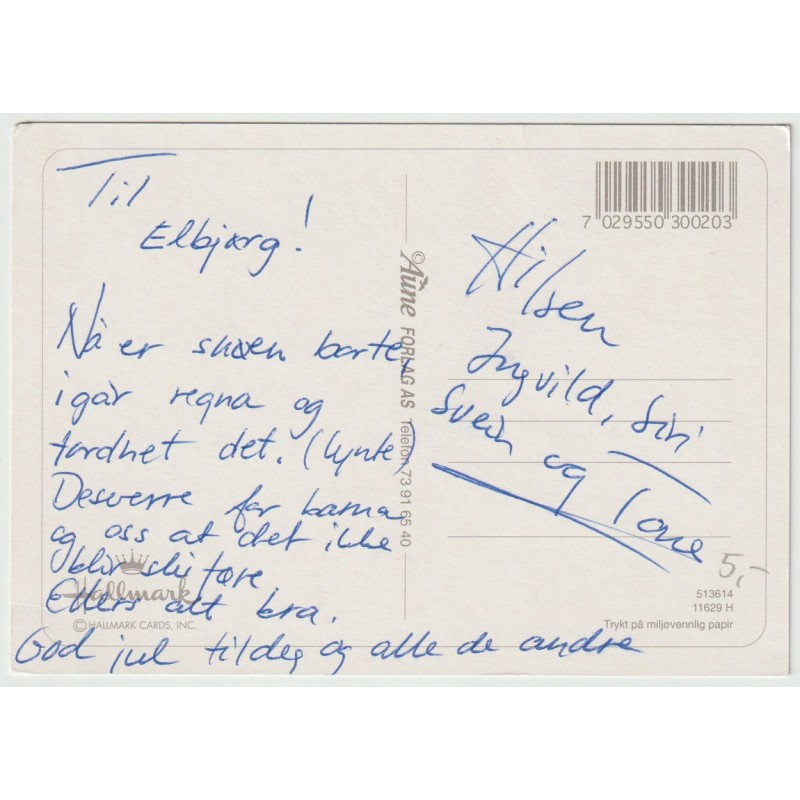 Til
Elbjørg!
Nå er snøen borte,
igår regna og
tordnet det. (lynte)
Desverre for barna
og oss at det ikke
blir skiføre.
Ellers alt bra.
God jul til deg og alle de andre
Hilsen
Ingvild, Siri
Svein og Tone
7 029550 300203
© Aune FORLAG AS Telefon 73 91 65 40
Hallmark
© HALLMARK CARDS, INC.
5,-
513614
11629 H
Trykt på miljøvennlig papir